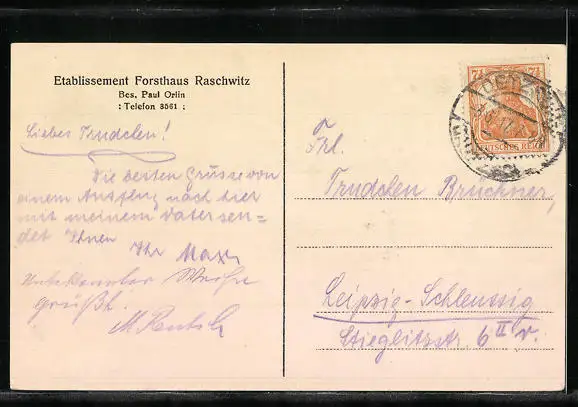 Etablissement Forsthaus Raschwitz
Bes. Paul Orlin
: Telefon 8561 :
Liebes Trudelen!
Die besten Grüsse von
einem Ausflug nach hier
mit meinem Vater sen=
det Ihnen
Ihr Max
Unbekannter Weise
grüßt
M. Rentsch
7½ 7½
DEUTSCHES REICH
OETZSCH
Frl.
Trudelen Bruckner,
Leipzig-Schleussig
Stieglitzstr. 6 II r.